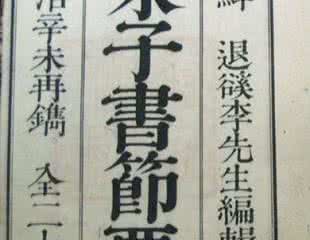 鮮 退溪李先生編輯
朱子書節要
治辛未再鐫 全二十